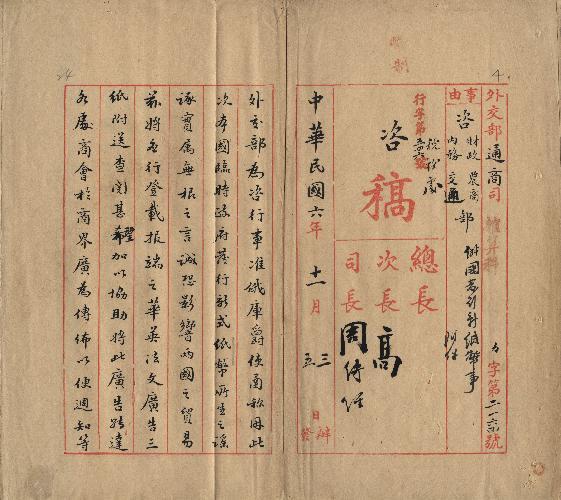 4
外交部通商司
字第二一六號
事由
咨 財政 農商 內務 交通 部 俄國發行新紙幣事
行字第 號
咨
稿
總長
次長 高
司長 周傳經
中華民國六年十一月
三日辦
五日發
外交部為咨行事准俄庫爵使函稱因此
次本國臨時政府發行新式紙幣所生之謠
諑實屬無根之言誠恐影響兩國之貿易
茲將各行登載報端之華英法文廣告三
紙附送查閱甚希望加以協助將此廣告轉達
各處商會於商界廣為傳佈以便週知等